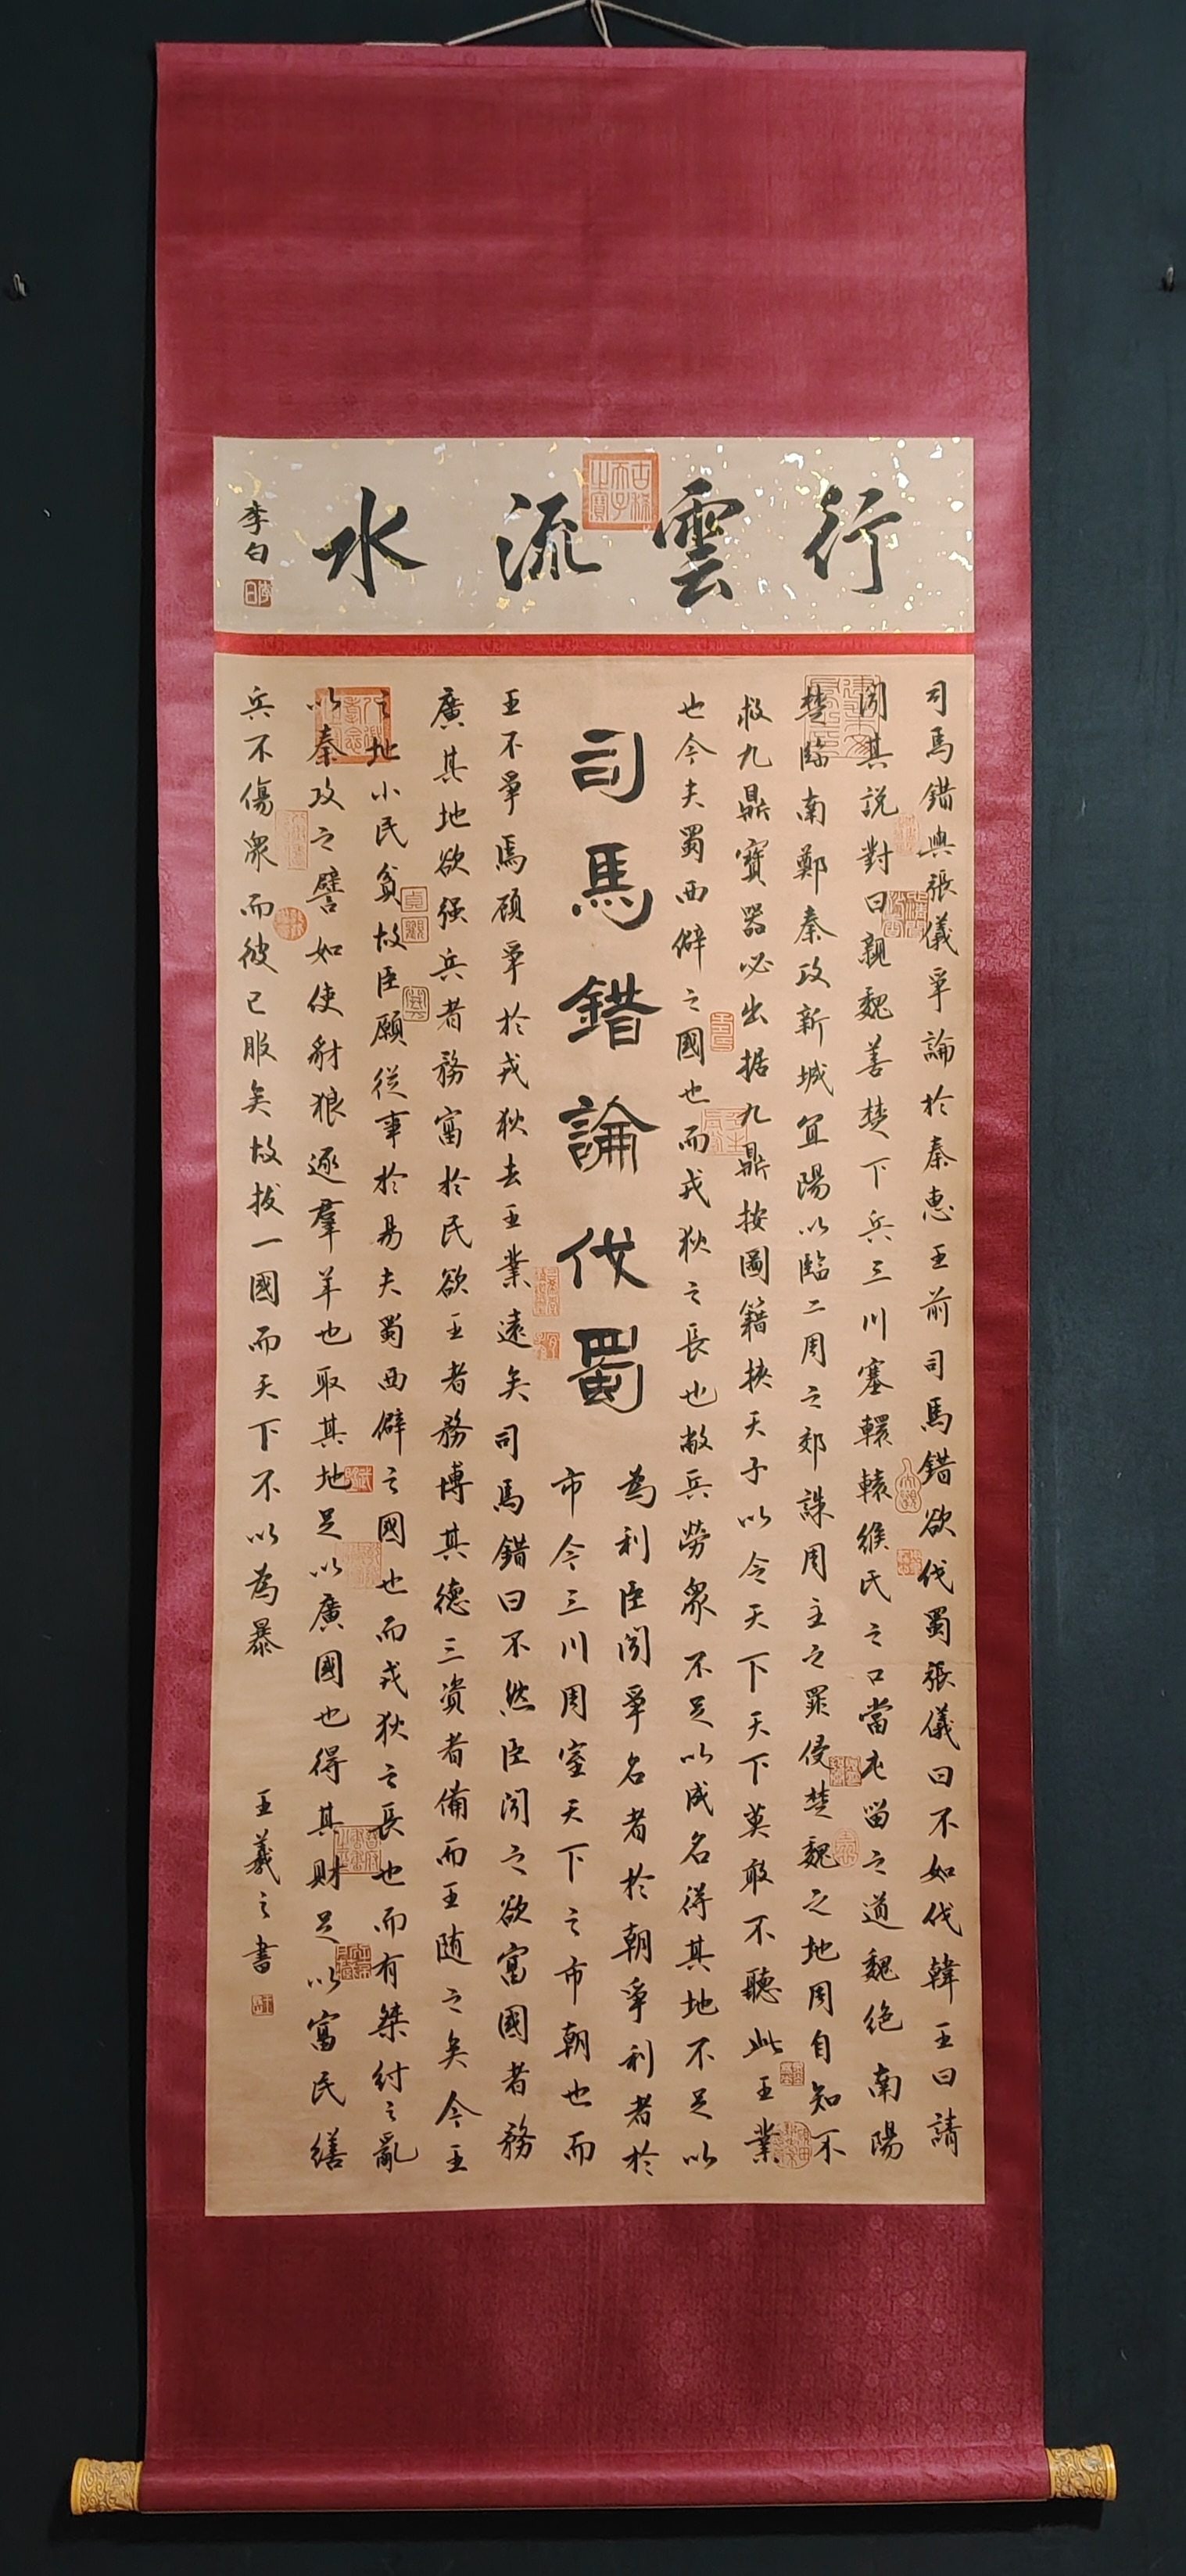 行雲流水
李白
司馬錯與張儀爭論於秦惠王前司馬錯欲伐蜀張儀曰不如伐韓王曰請
聞其說對曰親魏善楚下兵三川塞轘轅緱氏之口當屯留之道魏絕南陽
楚臨南鄭秦攻新城宜陽以臨二周之郊誅周主之罪侵楚魏之地周自知不
救九鼎寶器必出据九鼎按圖籍挾天子以令天下天下莫敢不聽此王業
也今夫蜀西僻之國也而戎狄之長也敝兵勞眾不足以成名得其地不足以
為利臣聞爭名者於朝爭利者於
司馬錯論伐蜀
市今三川周室天下之市朝也而
王不爭焉顧爭於戎狄去王業遠矣司馬錯曰不然臣聞之欲富國者務
廣其地欲强兵者務富於民欲王者務博其德三資者備而王隨之矣今王
之地小民貧故臣願從事於易夫蜀西僻之國也而戎狄之長也而有桀紂之亂
以秦攻之譬如使豺狼逐羣羊也取其地足以廣國也得其財足以富民繕
兵不傷眾而彼已服矣故拔一國而天下不以為暴
王羲之書